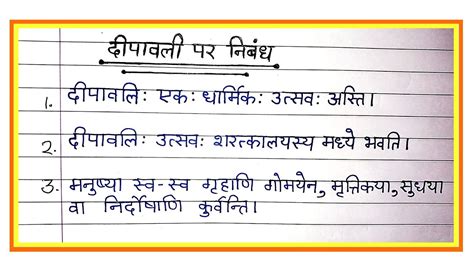 दीपावली पर निबंध
1. दीपावलिः एकः धार्मिकः उत्सवः अस्ति।
2. दीपावलिः उत्सवः शरत्कालयस्य मध्ये भवति।
3. मनुष्या स्व-स्व गृहाणि गोमयेन, मृत्तिकया, सुधया
वा निर्दोषाणि कुर्वन्ति।